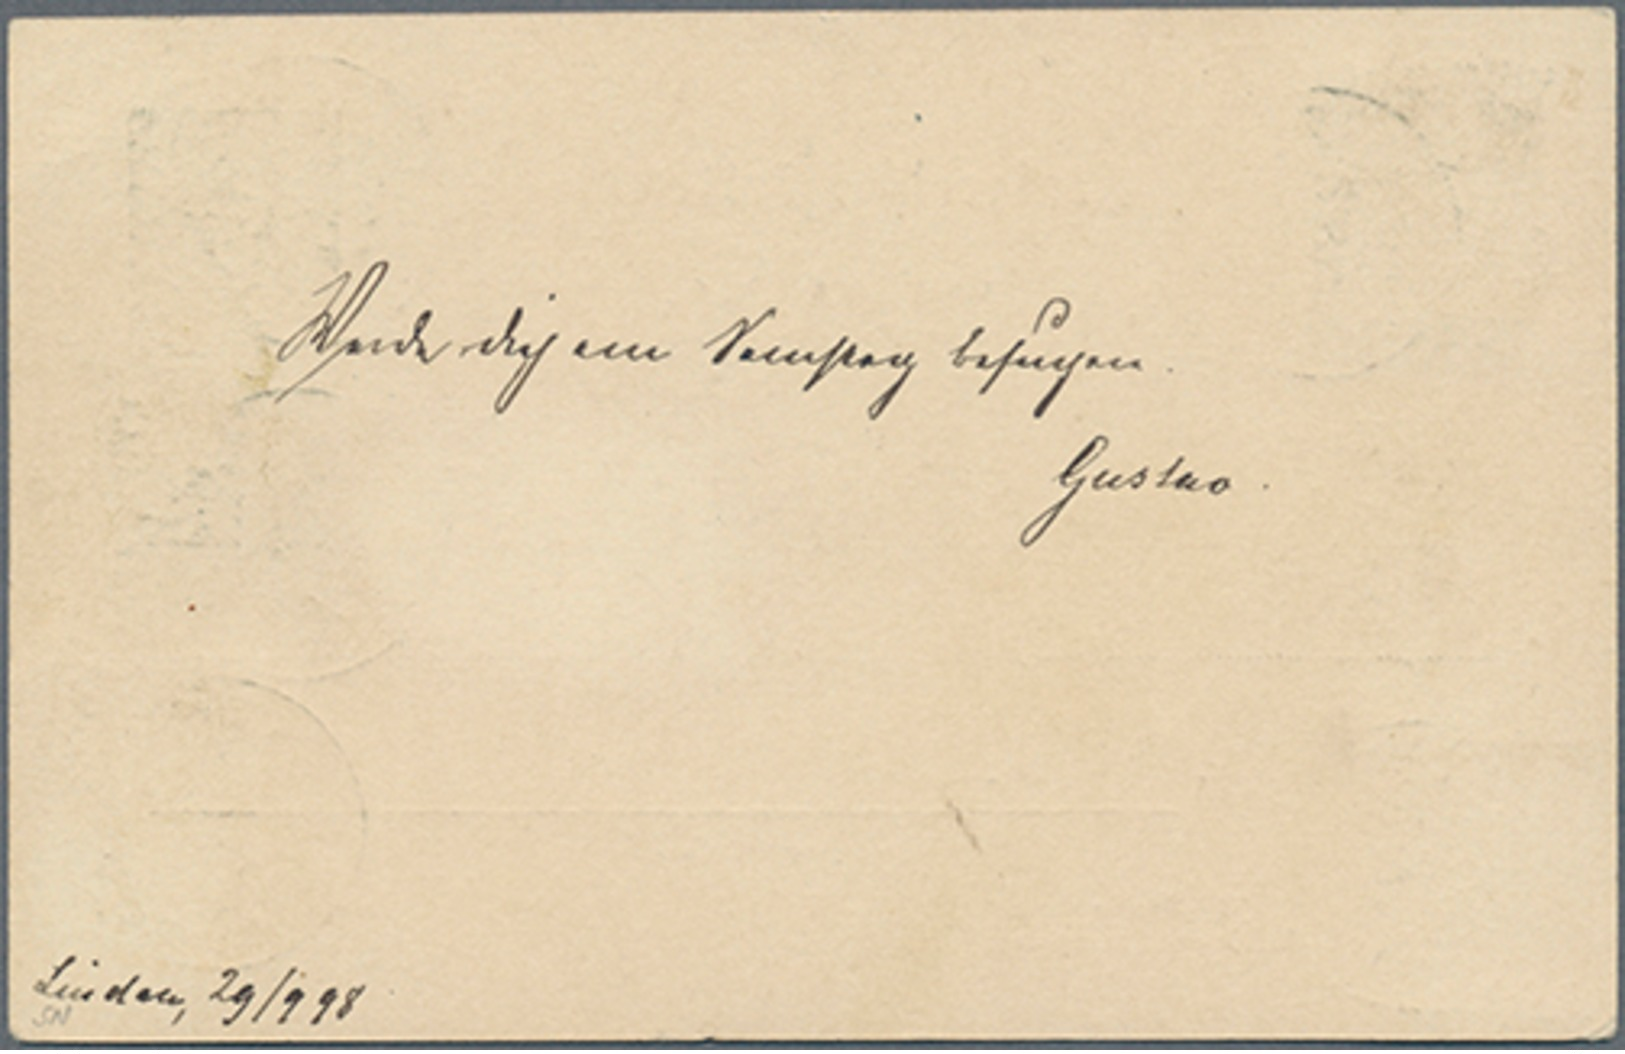 Werde dich am Samstag besuchen.
Gustav.
Linden, 29/9 98
SN